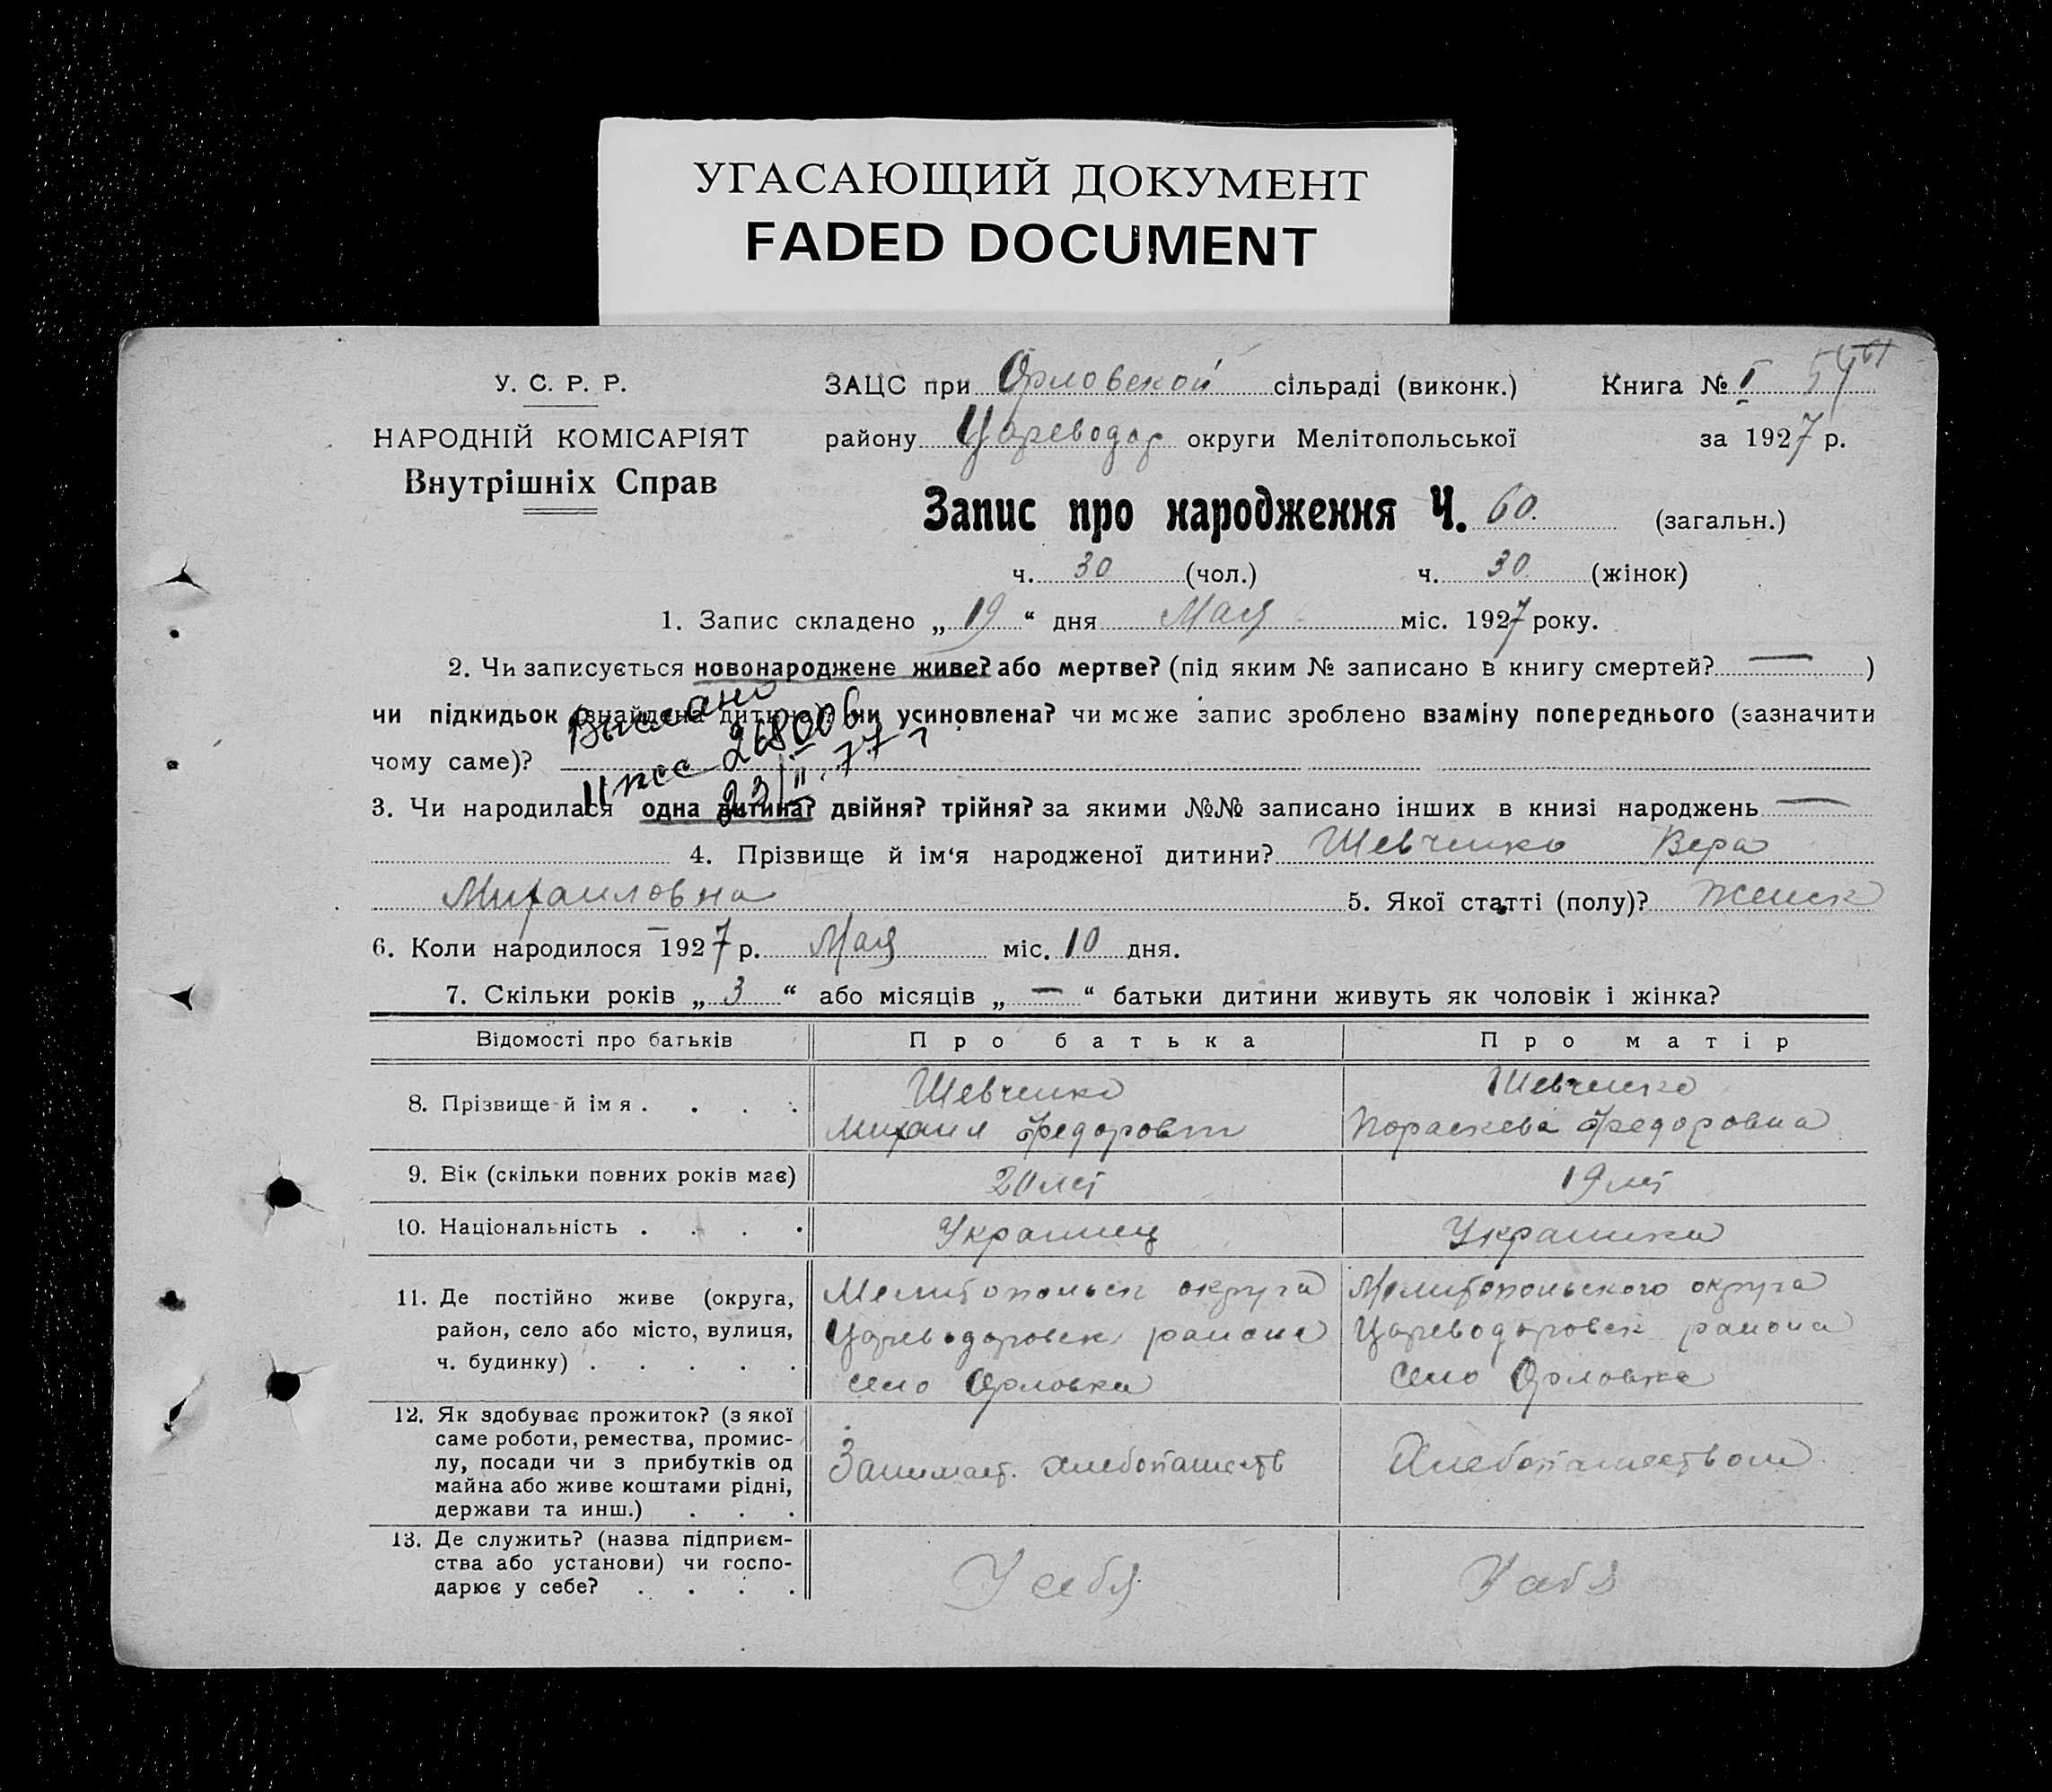 УГАСАЮЩИЙ ДОКУМЕНТ
FADED DOCUMENT
У. С. Р. Р.
НАРОДНІЙ КОМІСАРІЯТ
Внутрішніх Справ
ЗАЦС при Орловской сільраді (виконк.) Книга № I
району Цареводар округи Мелітопольської за 1927 р.
Запис про народження Ч. 60. (загальн.)
ч. 30 (чол.) ч. 30 (жінок)
1. Запис складено „ 19 “ дня Мая міс. 1927 року.
2. Чи записується новонароджене живе? або мертве? (під яким № записано в книгу смертей? — )
чи підкидьок (знайдена дитина)? чи усиновлена? чи може запис зроблено взаміну попереднього (зазначити
чому саме)?
Выслано
23/II.77
3. Чи народилася одна дитина? двійня? трійня? за якими №№ записано інших в книзі народжень —
4. Прізвище й ім‘я народженої дитини? Шевченко Вера
Михаиловна 5. Якої статті (полу)? женск
6. Коли народилося 1927 р. Мая міс. 10 дня.
7. Скільки років „ 3 “ або місяців „ — “ батьки дитини живуть як чоловік і жінка?
Відомості про батьків Про батька Про матір
8. Прізвище й імя . . . . Шевченко Шевченко
Михаил Федорович Параскева Федоровна
9. Вік (скільки повних років має) 20 лет 19 лет
10. Національність . . . . Украинец Украинка
11. Де постійно живе (округа, Мелитопольск округа Мелитопольского округа
район, село або місто, вулиця, Цареводаровск района Цареводаровск района
ч. будинку) . . . . . село Орловка село Орловка
12. Як здобуває прожиток? (з якої
саме роботи, ремества, промис-
лу, посади чи з прибутків од Занимает. хлебопашеств Хлебопашеством
майна або живе коштами рідні,
держави та инш.) . . .
13. Де служить? (назва підприєм-
ства або установи) чи госпо-
дарює у себе? . . . . У себя У себя